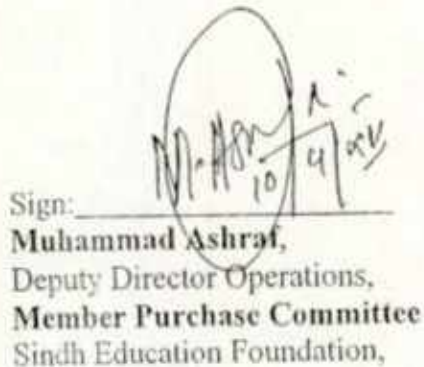 Sign:
Muhammad Ashraf,
Deputy Director Operations,
Member Purchase Committee
Sindh Education Foundation,